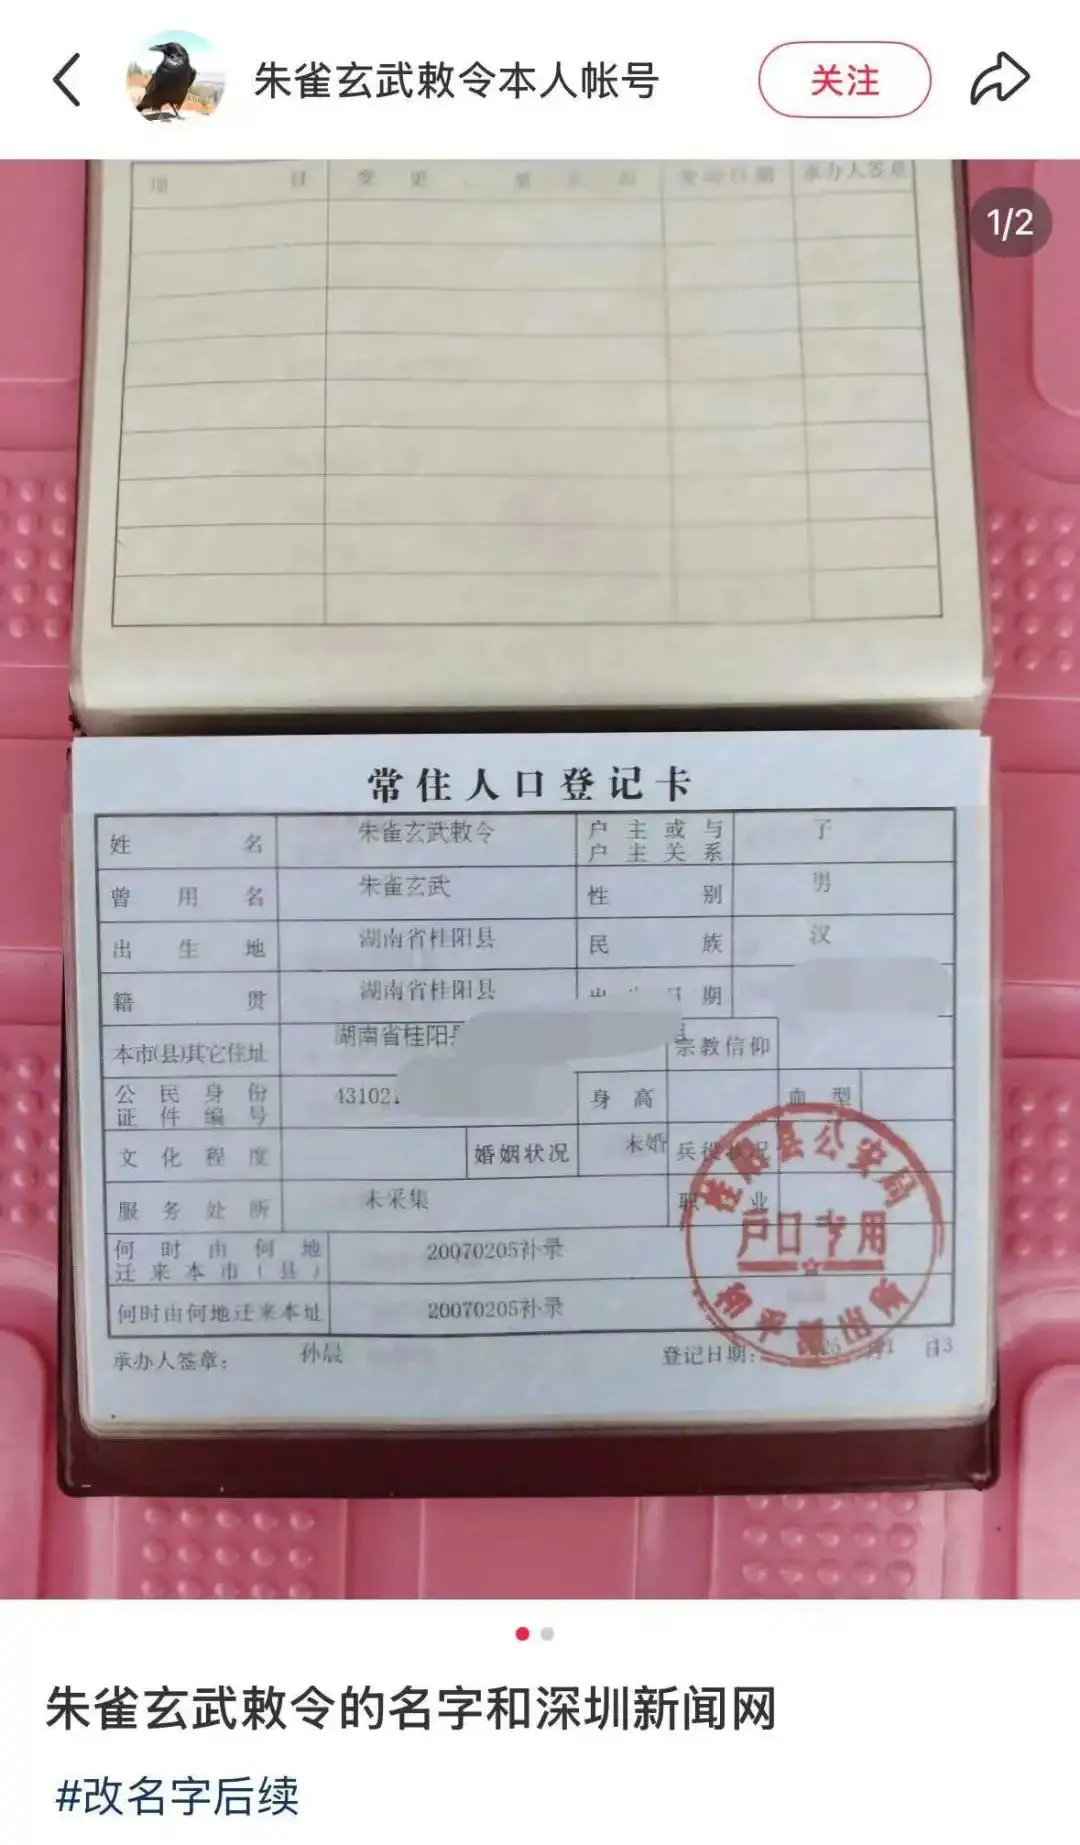 朱雀玄武敕令本人帐号
关注
1/2
项 目 变 更 变更日期 承办人签章
常住人口登记卡
姓 名 朱雀玄武敕令 户主或与户主关系 子
曾用名 朱雀玄武 性别 男
出生地 湖南省桂阳县 民族 汉
籍贯 湖南省桂阳县 期
本市(县)其它住址 湖南省桂阳 宗教信仰
公民身份证件编号 43102 身高 血型
文化程度 婚姻状况 未婚 兵役状况
服务处所 未采集 职业
何时由何地迁来本市(县) 20070205补录
何时由何地迁来本址 20070205补录
承办人签章: 孙晨 登记日期: 月1 日3
桂阳县公安局
户口专用
和平派出所
朱雀玄武敕令的名字和深圳新闻网
#改名字后续